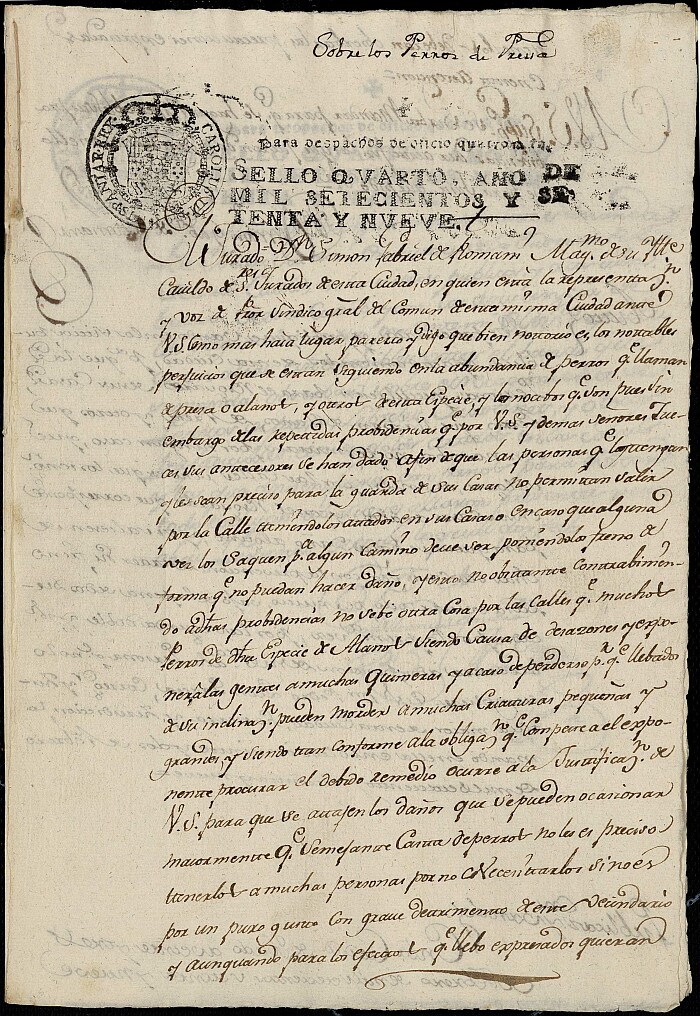 Sobre los Perros de Pressa
CAROLUS
Para despachos de oficio quatro mrs.
SELLO QVARTO, AÑO DE
MIL SETECIENTOS Y SE-
TENTA Y NUEVE.
Jurado Dn. Simon Gabriel de Roman Maymo. de su Itte
Cavildo de S.res Jurados de esta Ciudad, en quien está la representazn.
y voz de Pror Sindico gral del Comun de esta misma Ciudad ante
V.S. como mas haia lugar parezco y digo que bien nottorio es, los nottables
perjuicios que se estan siguiendo en la abundancia de perros qe. llaman
de presa o alanos, y otros de esta Especie, y los nocibos qe. son pues sin
embargo de las repettidas probidencias qe. por V.S. y demas señores Jue-
ces sus antecesores se han dado afin de que las personas qe. los tengan
y les sean preciso para la guarda de sus Casas no permittan salir
por la Calle teniendolos attados en sus Casas o en caso que alguna
vez los saquen pa. algun Camino deve ser poniendolo freno de
forma qe. no puedan hacer daño, y esto no obstante contrabinien-
do adhas probidencias no se bé otra Cosa por las calles qe. muchos
Perros de dha Especie de Alanos siendo Causa de desazones y expo-
ner a las gentes a muchas Quimeras y acaso de perderse pr. qe. llebados
de su inclinazn. pueden morder a muchas Criaturas pequeñas y
grandes, y siendo ttan conforme a la obligazn. qe. Compete a el expo-
nente procurar el debido remedio ocurre a la Justificazn. de
V.S. para que se attajen los daños que se pueden ocasionar
maiormente qe. semejante Casta de perros no les es preciso
tenerlos a muchas personas por no necesittarlos sino es
por un puro gusto con grave detrimento de este vecindario
y aunquando para los efectos qe. llebo expresados quieran